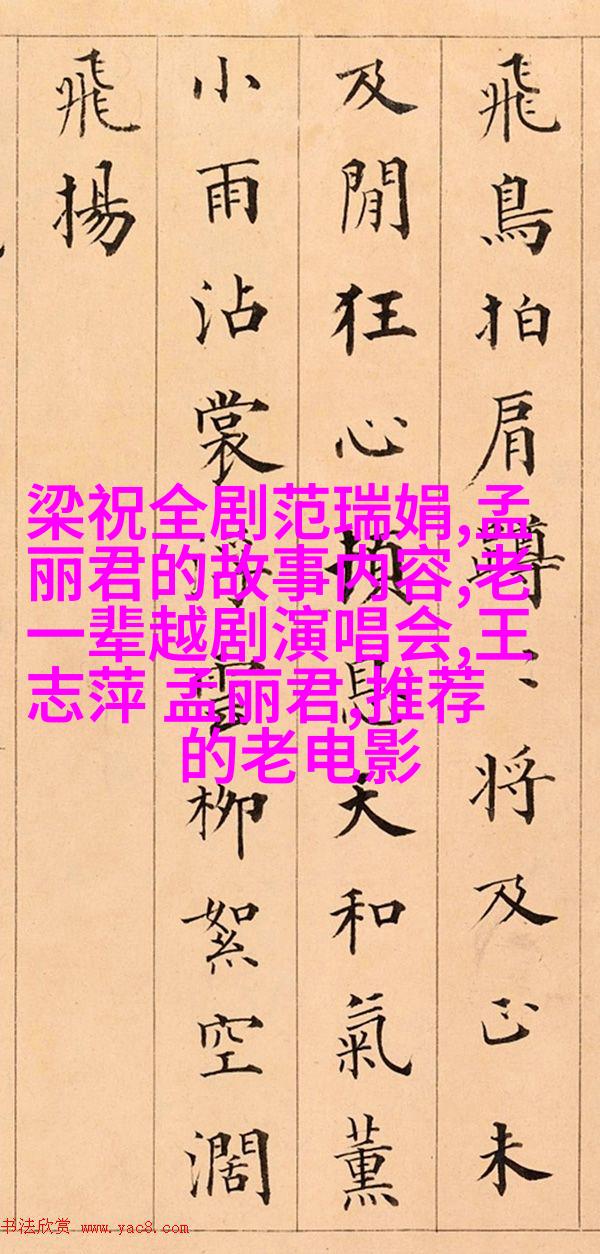 飛鳥拍肩將及正未
及閒狂心息大和氣薰
小雨沾裳柳絮空濶
飛揚
梁祝全剧范瑞娟,孟
丽君的故事内容,老
一辈越剧演唱会,王
志萍 孟丽君,推荐
的老电影
书法欣赏 www.yac8.com